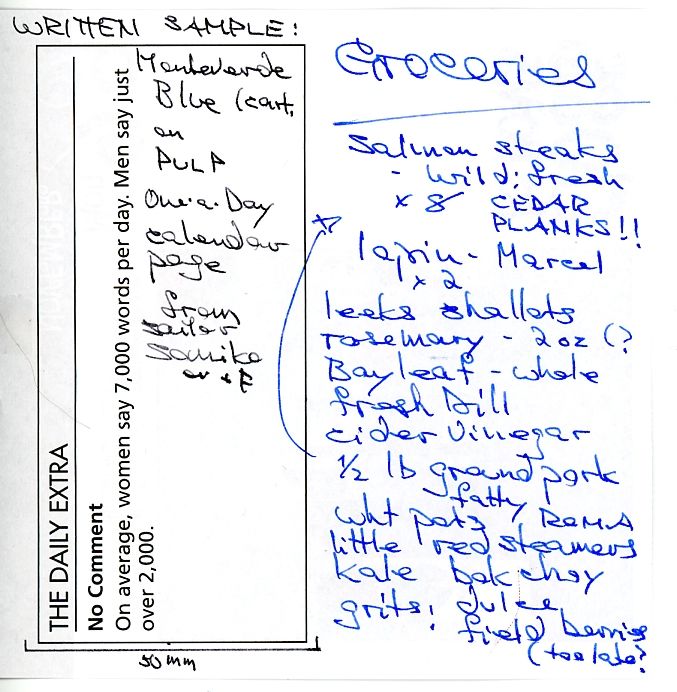 WRITTEN SAMPLE:
THE DAILY EXTRA
No Comment
On average, women say 7,000 words per day. Men say just
over 2,000.
Monteverde
Blue (cart,
on
PULP
One·a·Day
calendar
page
from
sailor
50 mm
Groceries
Salmon steaks
- wild; fresh
x 8 CEDAR
PLANKS!!
lapin - Marcel
x 2
leeks shallots
rosemary - 2 oz (?
Bayleaf - whole
fresh Dill
cider vinegar
1/2 lb ground pork
fatty
wht potz ROMA
little red steamers
kale bok choy
grits; dulce
field berries
(too late?